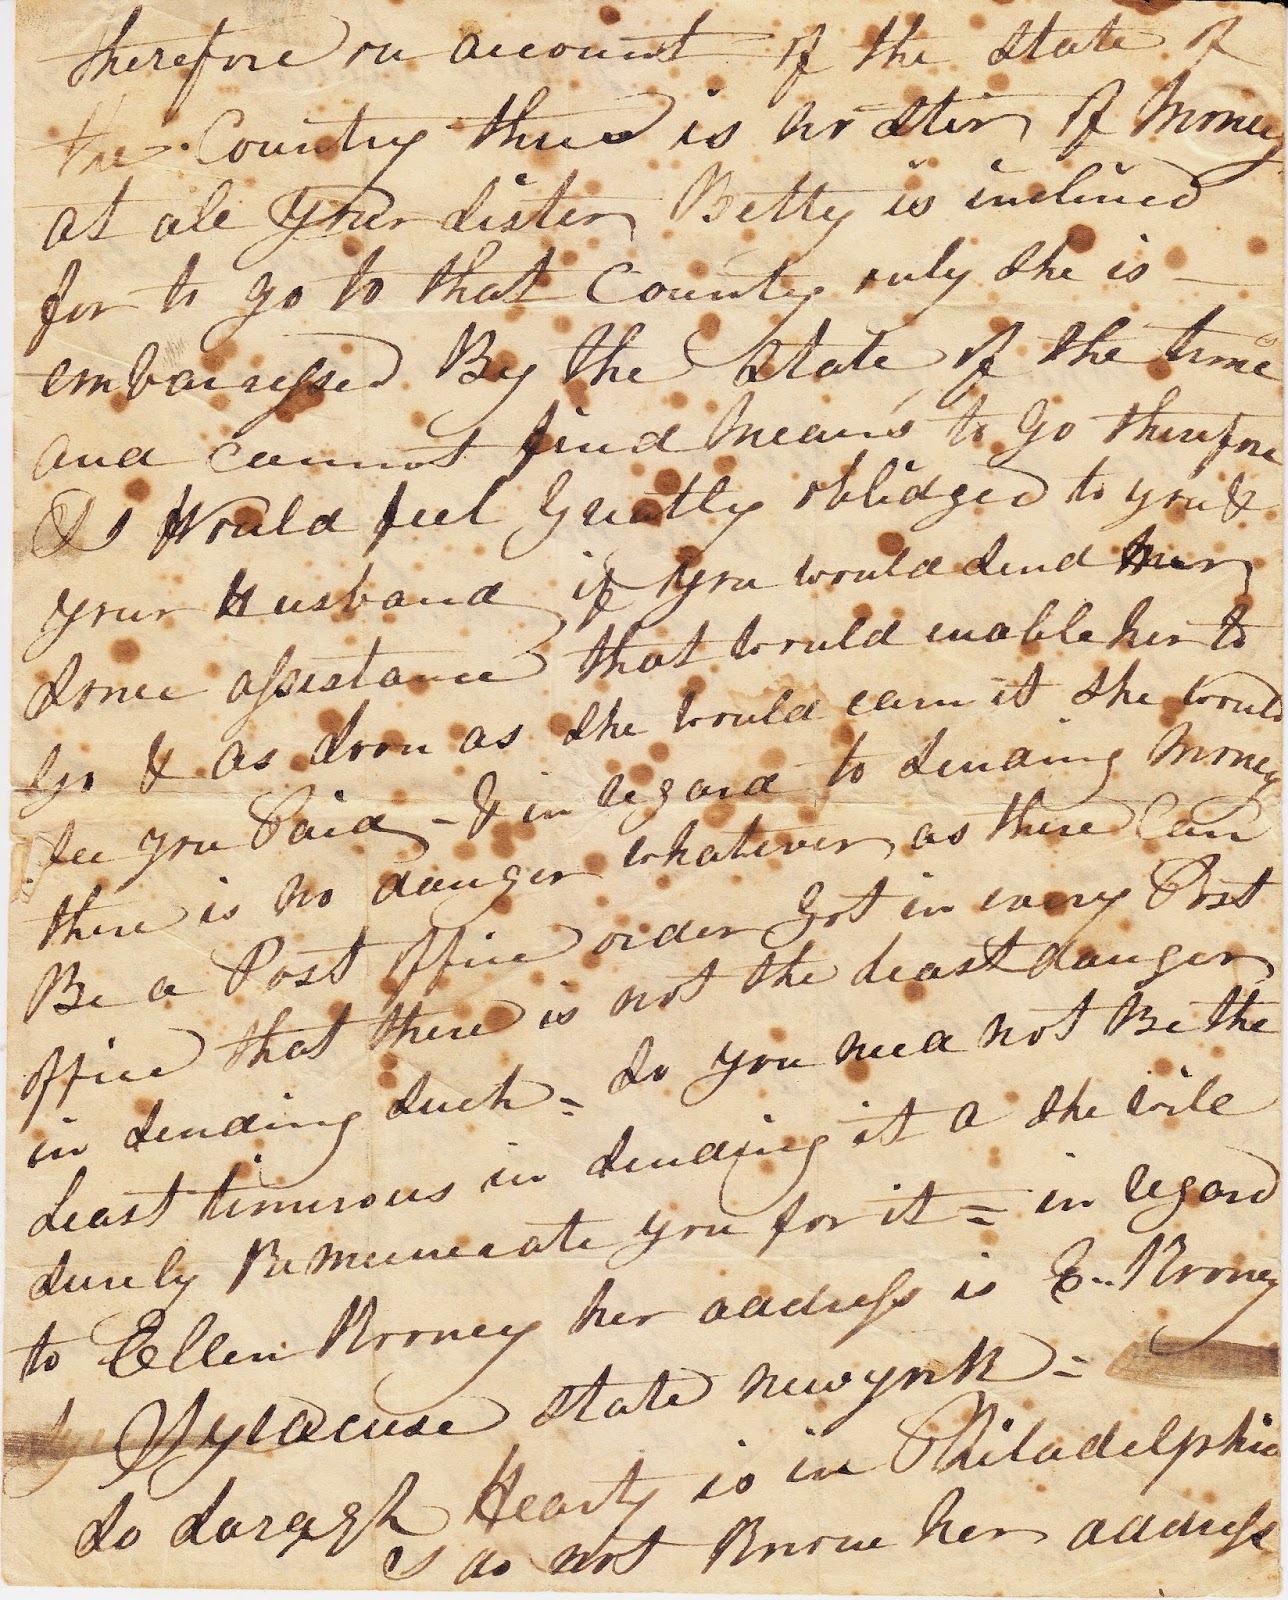 therefore on account of the state of
the Country there is no stir of Money
at all your sister Betty is inclined
for to go to that County only she is
embarrassed By the state of the time
and cannot find Means to go therefore
I Would feel Greatly oblidged to you &
your Husband if you would send her
some assistance that would enable her to
go & as soon as she would earn it she would
see you Paid - & in regard to sending Money
there is no danger whatever as there Can
Be a Post office order got in every Post
office that there is not the least danger
in sending such = so you need not Be the
Least timorous in sending it a she will
surely Remunerate you for it = in regard
to Ellen Rooney her address is E. Rooney
Syracuse state newyork =
so Saragh Hearty is in Philadelphia
I do not Know her address